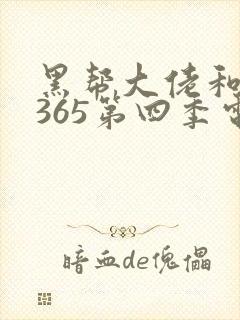 黑帮大佬和
365第四季电
暗血de傀儡